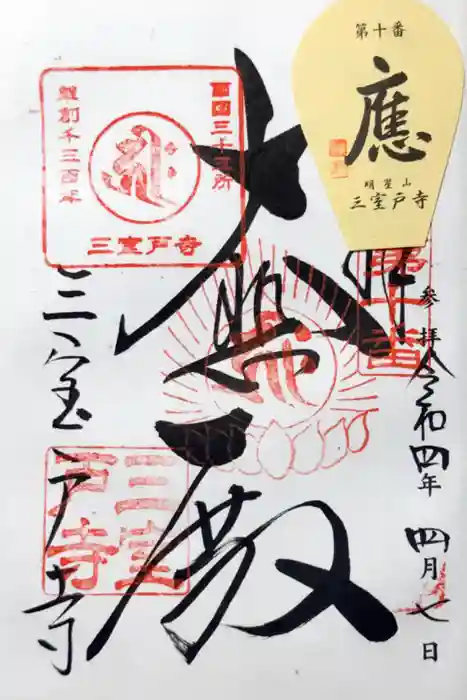 第十番
應
明星山
三室戸寺
西国三十三所
草創千三百年
三室戸寺
第十番
参拝
令和四年四月七日
大悲殿
三室戸寺
三室
戸寺